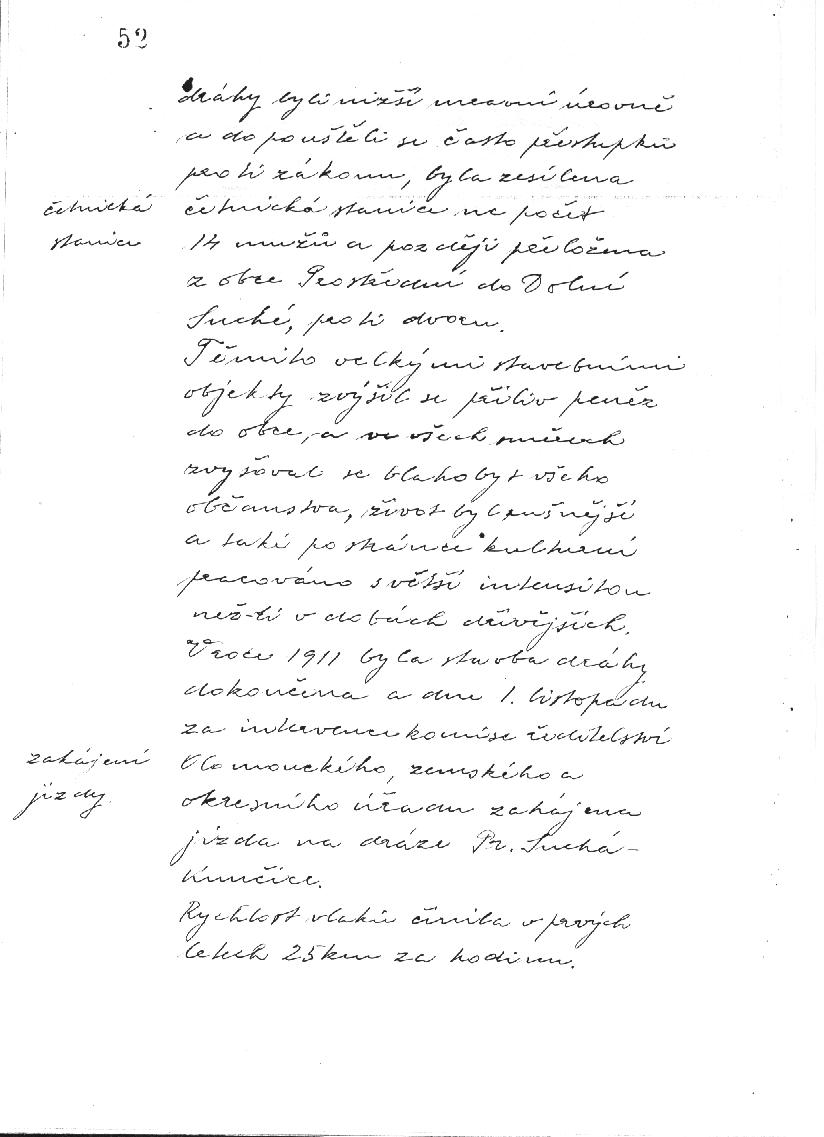 52
dráhy byli nižší mravní úrovně
a dopouštěli se často přestupků
proti zákonu, byla zesílena
četnická
četnická stanice na počet
stanice
14 mužů a později přeložena
z obce Prostřední do Dolní
Suché, proti dvoru.
Těmito velkými stavebními
objekty zvýšil se příliv peněz
do obce, a ve všech směrech
zvyšoval se blahobyt všeho
občanstva, život byl rušnější
a také po stránce kulturní
pracováno s větší intensitou
než-li v dobách dřívějších.
V roce 1911 byla stavba dráhy
dokončena a dne 1. listopadu
za intervence komise ředitelství
zahájení
Olomouckého, zemského a
jízdy
okresního úřadu zahájena
jízda na dráze Pr. Suchá-
Kunčice.
Rychlost vlaků činila v prvých
letech 25 km za hodinu.